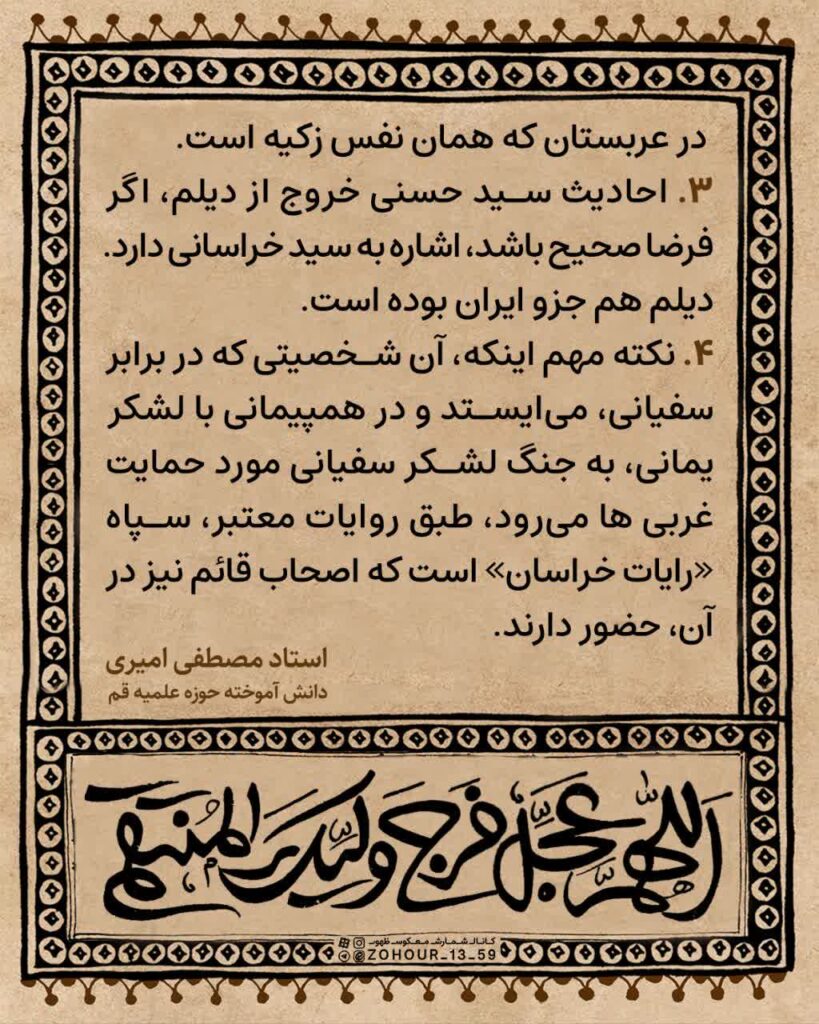 در عربستان که همان نفس زکیه است.
۳. احادیث سید حسنی خروج از دیلم، اگر
فرضا صحیح باشد، اشاره به سید خراسانی دارد.
دیلم هم جزو ایران بوده است.
۴. نکته مهم اینکه، آن شخصیتی که در برابر
سفیانی، می‌ایستد و در همپیمانی با لشکر
یمانی، به جنگ لشکر سفیانی مورد حمایت
غربی ها می‌رود، طبق روایات معتبر، سپاه
«رایات خراسان» است که اصحاب قائم نیز در
آن، حضور دارند.
استاد مصطفی امیری
دانش آموخته حوزه علمیه قم
اللهم عجل فرج ولیک المنتقم
کانال شمارش معکوس ظهور
@ZOHOUR_13_59